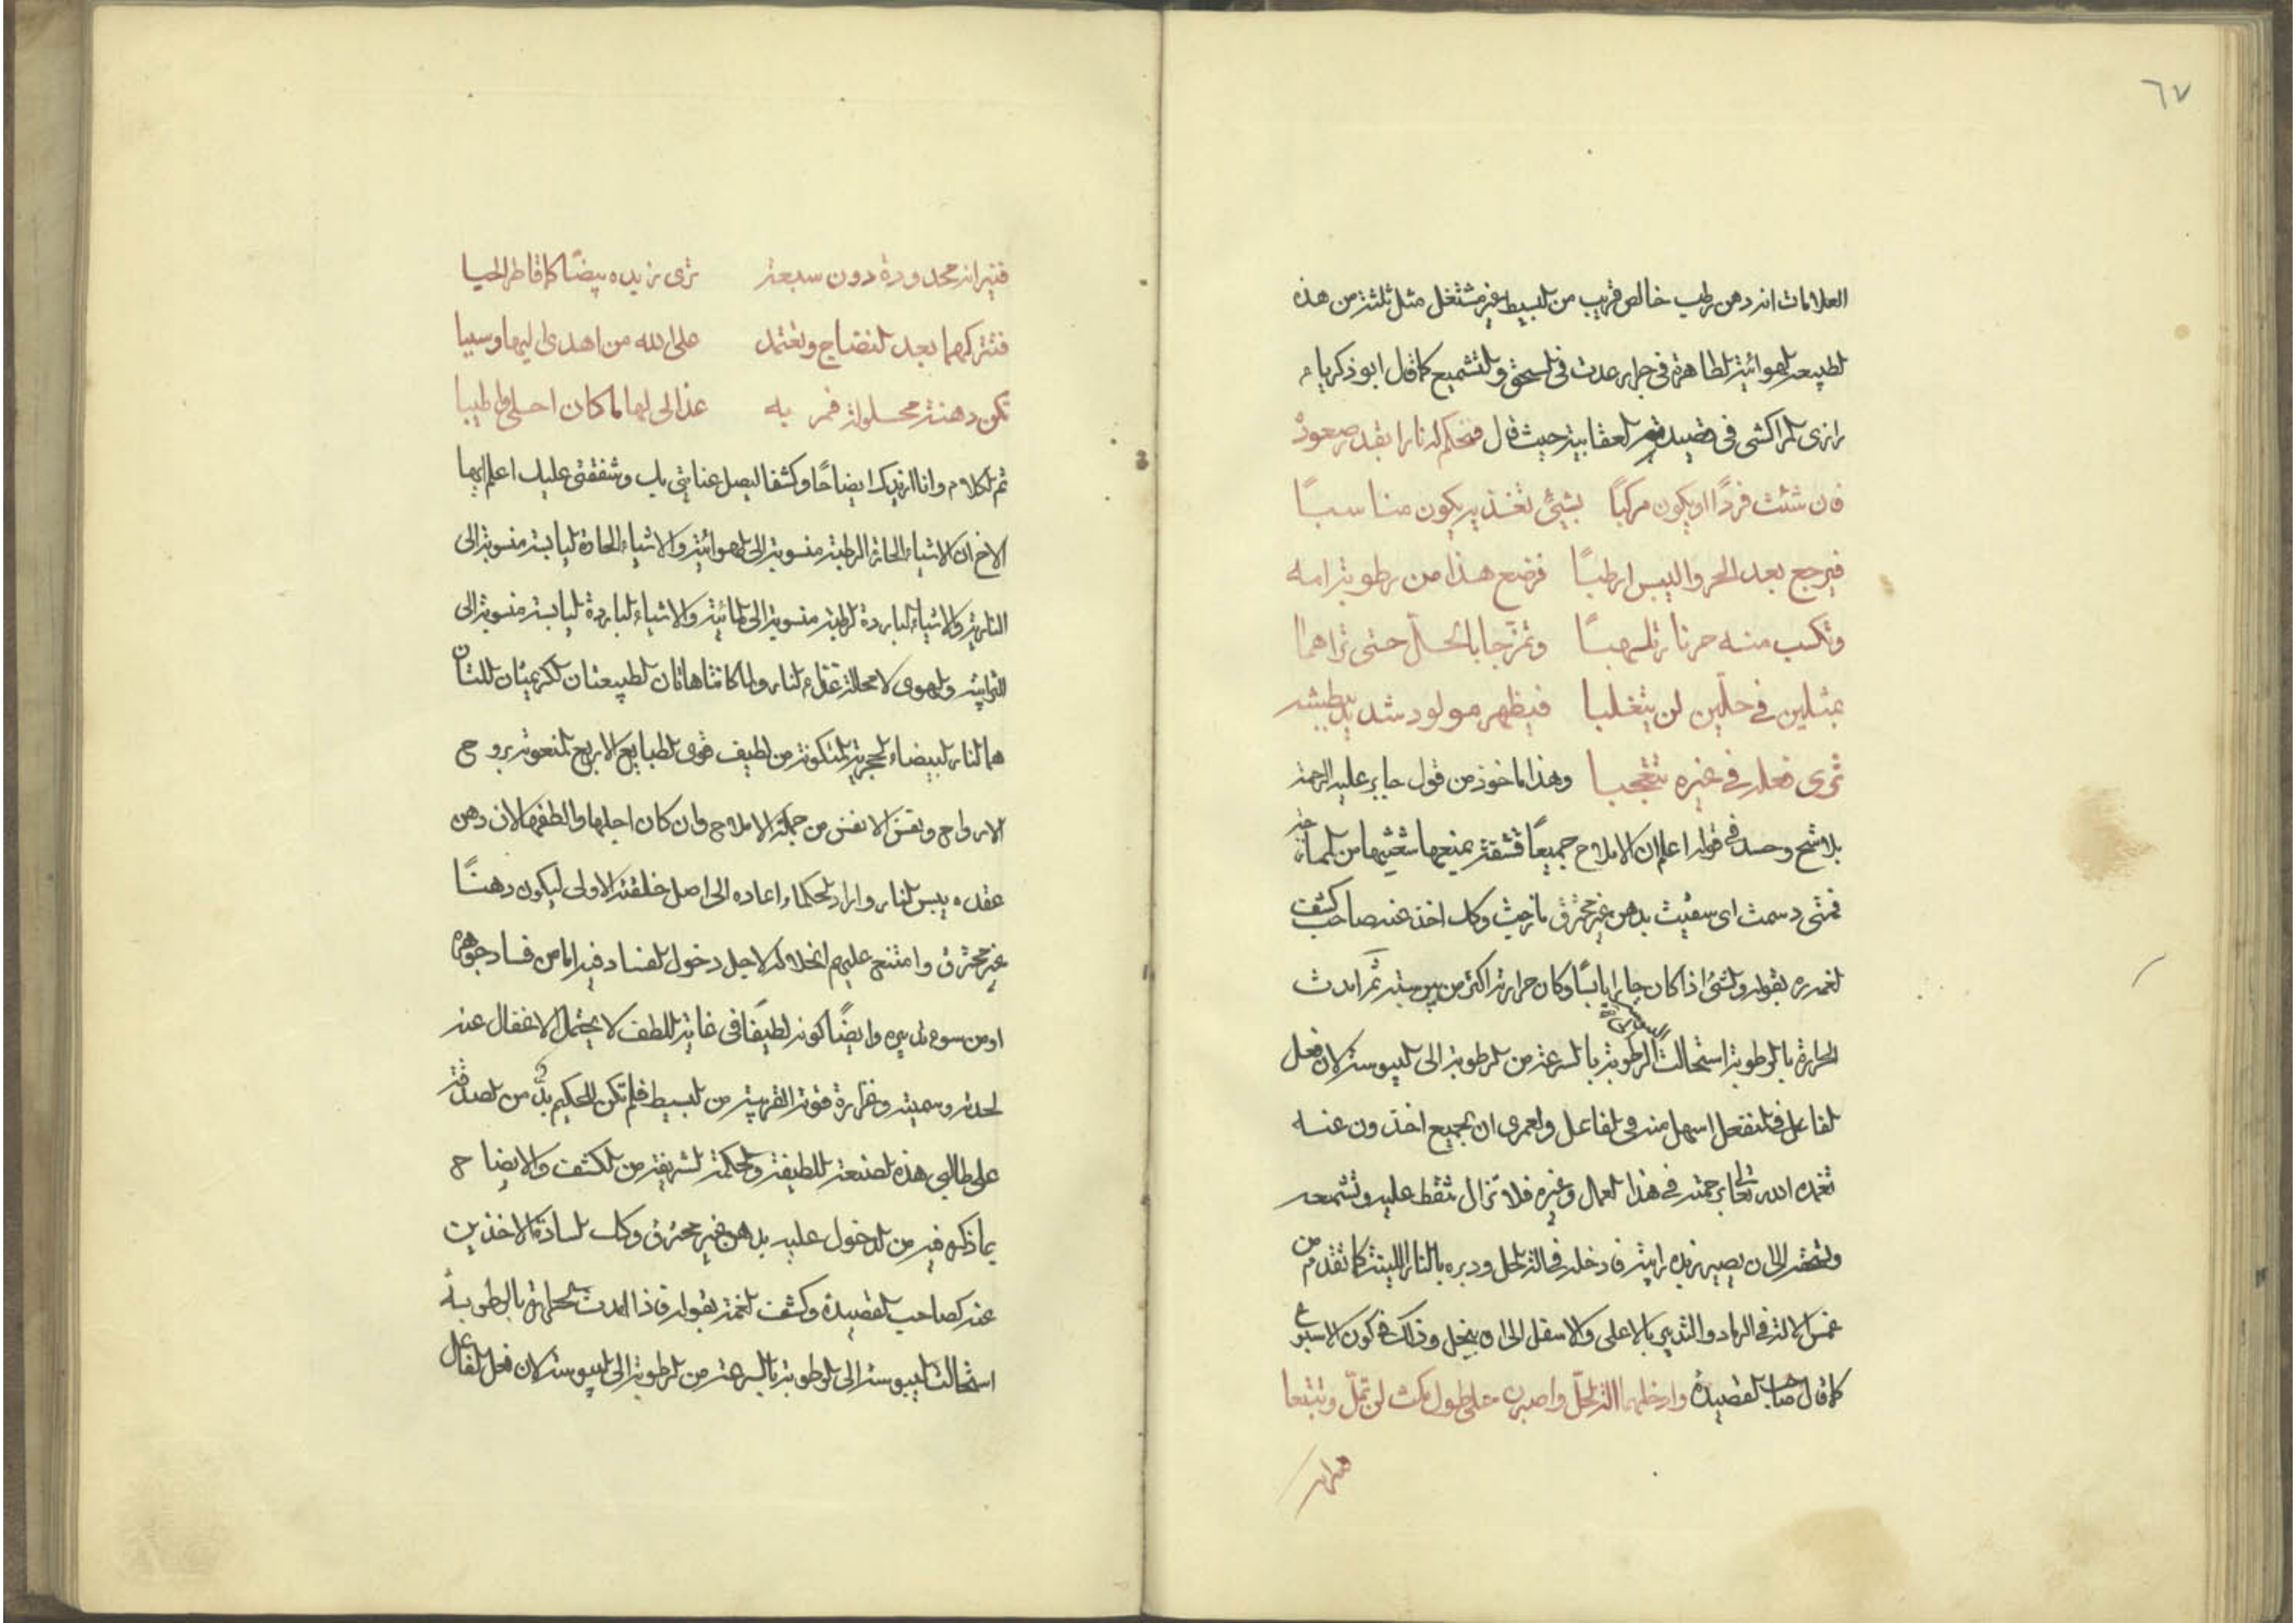 ٦٧
العلامات انه دهن رطب خالص قريب من البسيط غير مشتعل مثل ثلثة من هذه
الطبيعة الهوائية الطاهرة في جراير عدت في السحق والتشميع كما قال ابو ذكريا
رازي المراكشي في قصيدته العقابية حيث قال فتحكم له نارا بقدر صعوده
فان شئت فردًا او يكون مركبًا بشئ تغذيه يكون مناسبًا
فيرجع بعد الحر واليبس ارطبًا فرضع هذا من رطوبة امه
وتكسب منه حرنار تلهبًا وتمزجا بالحلّ حتى تراهما
بمثلين في حلّين لن يتغلبا فيظهر مولود شديد بطيشه
ترى فعله في غيره تتعجبا وهذا ماخوذ من قول جابر عليه الرحمة
بلا شح وحسد في قوله اعلم ان الاملاح جميعًا قشفة يمنعها شعثها من الممازجة
فمتى دسمت اى سقيت بدهن غير محترق مازجت وكك اخذ عنه صاحب كشف
لغمره بقوله والشئ اذا كان حارا يابسًا وكان حرارته اكثر من يبوسته ثم ابدت
الحرارة بالرطوبة استحالت الرطوبة بالسرعة من الرطوبة الى اليبوسة لان فعل
الفاعل في المنفعل اسهل منه في الفاعل ولعمري ان الجميع اخذون عنه
تغمده الله تعالى برحمته في هذا العمل وغيره فلا تزال تقط عليه وتشمعه
وتسحقه الى ان يصير زبده رايبة فادخله في الة الحل ودبره بالنار اللينة كما تقدم من
غمس الالة في الرماد والتدبير بالاعلى والاسفل الى ان ينحل وذلك في كون الاسبوع
كما قال صاحب القصيدة وادخلهما الة الحلّ واصبرن على طول مكث لن تملّ وتتعبا
فنيرانه
فنيرانه محدودة دون سبعة ترى زيده بيضًا كما قاطر الحيا
فتتركهما بعد النضاج وتعتمد على الله من اهدى اليها وسببا
تكن دهنة محلولة قمريه غذا لى لها لما كان احلى واطيبا
تم الكلام وانا ازيدك ايضاحًا وكشفا ليصل عنايتى بك وشفقتى عليك اعلم ايها
الاخ ان الاشياء الحارة الرطبة منسوبة الى الهوائية والاشياء الحارة اليابسة منسوبة الى
النارية والاشياء الباردة الرطبة منسوبة الى المائية والاشياء الباردة اليابسة منسوبة الى
الترابية والهوى لا محالة غذاء النار ولما كانتا هاتان الطبيعتان الكريمتان اللتان
هما النار البيضاء الحجرية المتكونة من لطيف قوى الطبايع الاربع المنعوتة بروح
الارواح ونفس الانفس من جملة الاملاح وان كان اجلها والطفها لان دهن
عقده يبس النار واراد الحكماء اعاده الى اصل خلقته الاولى ليكون دهنًا
غير محترق وامتنع عليهم انحلاله لاجل دخول الفساد فيه اما من فساد جوهره
او من سوء تدبيره وايضًا كونه لطيفًا في غاية اللطف لا يحتمل الاغفال عنه
لحدته وسميته وغزارة قوته القريبة من البسيط فلم تكن للحكيم بدٌّ من الصدقة
على طالبي هذه الصنعة اللطيفة والحكمة الشريفة من الكشف والايضاح
بما ذكره فيه من الدخول عليه بدهن غير محترق وكك السادة الاخذين
عنه كصاحب القصيدة وكشف الغمة بقوله فاذا ابدت الحرارة بالرطوبة
استحالت اليبوسة الى الرطوبة بالسرعة من الرطوبة الى اليبوسة لان فعل الفاعل